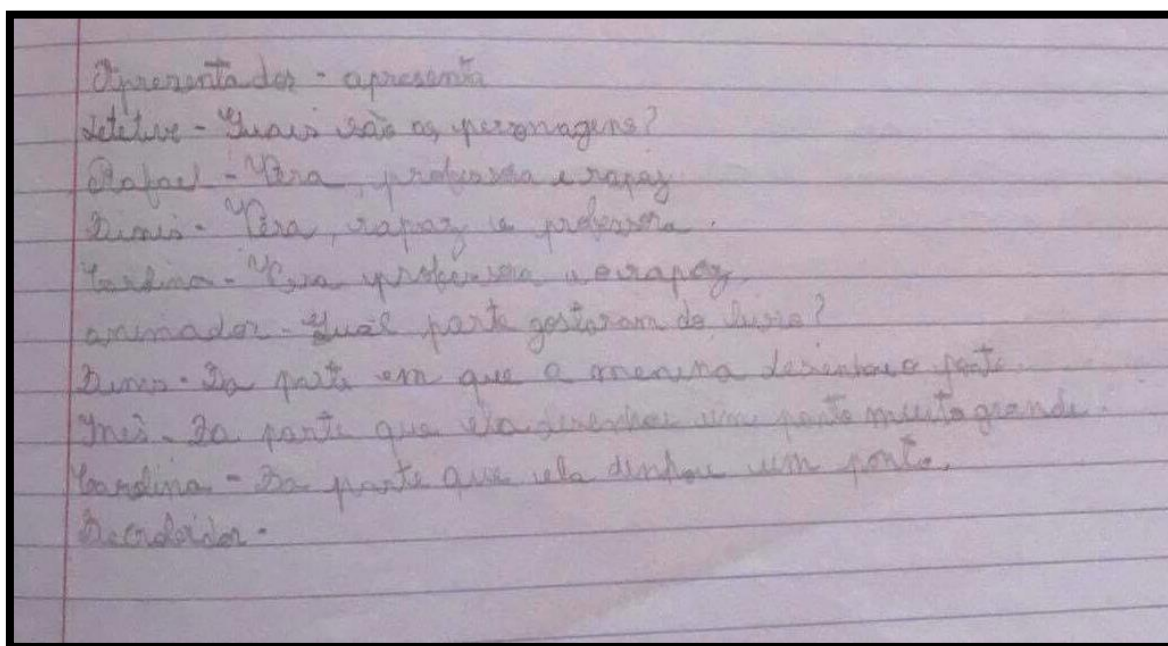 Apresentador - apresenta
Detetive - Quais são os personagens?
Rafael - Vera, professora e rapaz
Dinis - Vera, rapaz e professora.
Carolina - Vera professora e rapaz.
animador - Qual parte gostaram do livro?
Dinis - Da parte em que a menina desenhou o ponto.
Inês - Da parte que ela desenhou um ponto muito grande.
Carolina - Da parte que ela dinhou um ponto.